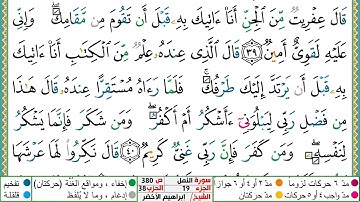 قَالَ عِفْرِيتٌ مِّنَ ٱلْجِنِّ أَنَا۠ ءَاتِيكَ بِهِۦ قَبْلَ أَن تَقُومَ مِن مَّقَامِكَ ۖ وَإِنِّى
عَلَيْهِ لَقَوِىٌّ أَمِينٌ ٣٩ قَالَ ٱلَّذِى عِندَهُۥ عِلْمٌ مِّنَ ٱلْكِتَٰبِ أَنَا۠ ءَاتِيكَ
بِهِۦ قَبْلَ أَن يَرْتَدَّ إِلَيْكَ طَرْفُكَ ۚ فَلَمَّا رَءَاهُ مُسْتَقِرًّا عِندَهُۥ قَالَ هَٰذَا
مِن فَضْلِ رَبِّى لِيَبْلُوَنِىٓ ءَأَشْكُرُ أَمْ أَكْفُرُ ۖ وَمَن شَكَرَ فَإِنَّمَا يَشْكُرُ
لِنَفْسِهِۦ ۖ وَمَن كَفَرَ فَإِنَّ رَبِّى غَنِىٌّ كَرِيمٌ ٤٠ قَالَ نَكِّرُوا۟ لَهَا عَرْشَهَا
مدّ ٦ حركات لزوما مدّ ٢ أو ٤ أو ٦ جوازا سورة النمل ص 380 إخفاء، ومواقع الغنّة (حركتان) تفخيم
مدّ واجب ٤ أو ٥ حركات مدّ حركتان الجزء 19 الحزب 38 إدغام، وما لا يُلفظ قلقلة
الشيخ/ إبراهيم الأخضر